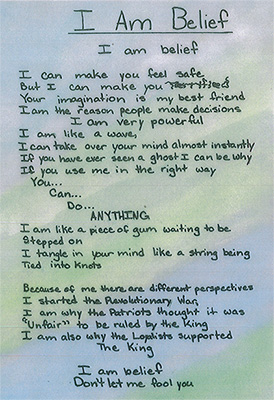 I Am Belief
I am belief
I can make you feel safe,
But I can make you terrified
Your imagination is my best friend
I am the reason people make decisions
I am very powerful
I am like a wave,
I can take over your mind almost instantly
If you have ever seen a ghost I can be why
If you use me in the right way
You...
Can...
Do...
ANYTHING
I am like a piece of gum waiting to be
stepped on
I tangle in your mind like a string being
Tied into knots
Because of me there are different perspectives
I started the Revolutionary War,
I am why the Patriots thought it was
"Unfair" to be ruled by the King
I am also why the Loyalists supported
The King
I am belief
Don't let me fool you